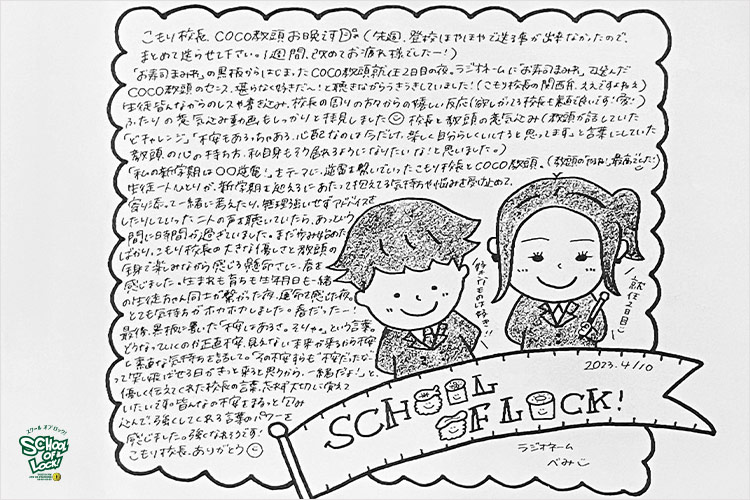 こもり校長、COCO教頭お晩です!!(先週、登校はやほやで送る事が出来なかったので、
まとめて送らせて下さい。1週間、改めてお疲れ様でしたー!)
「お寿司まみれ」の黒板からはじまったCOCO教頭就任2日目の夜。ラジオネームに「お寿司まみれ」で選んだ
COCO教頭のセンス、堪らなく好きだ~!と聴きながらうきうきしていました!(こもり校長の関西弁、ええですねぇ)
生徒皆んなからのレスや書き込み、校長の周りの方々からの優しい反応
ふたりの意気込み動画もしっかりと拝見しました 校長と教頭の意気込み(教頭が話していた
「どチャレンジ」「不安もあるっちゃある、心配なのは今だけで、楽しく自分らしくいけると思ってます」と言葉にしていた
教頭の心の持ち方、私自身もそう居れるようになりたいな!と思いました。)
「私の新学期は〇〇逆電!」をテーマに、逆電を繋いでいったこもり校長とCOCO教頭、
生徒一人ひとりが、新学期を迎えるにあたって抱えてる気持ちや悩みを受け止めて、
寄り添って一緒に考えたり、無理強いせずアドバイスを
したりしていった二人の声を聴いていたら、あっという
間に1時間が過ぎていました。まだ歩み始めた
ばかり。こもり校長の大きな優しさと教頭の
全身で楽しみながら感じる懸命さに、春を
感じました。生まれも育ちも生年月日も一緒
の生徒ちゃん同士が繋がった夜、運命を感じた夜。
とても気持ちがポカポカしました。春だったー!
最後、黒板に書いた「不安はあるさ。そりゃ。」という言葉。
どうなっていくのか正直不安、見えない未来が来るから不安
と素直な気持ちを話して。「その不安すらも"不安だったな"
って笑い飛ばせる日がきっと来ると思うから、一緒だよ!」と、
優しく伝えてくれた校長の言葉、忘れず大切に覚えて
いたいです。皆んなの不安をまるっと包み
込んで、強くしてくれる言葉のパワーを
感じました。強くなれそうです!
こもり校長、ありがとう
好きなものは好き!!
就任2日目
2023.4/10
SCHOOL
OF LOCK!
ラジオネーム
べみこ
スクール オブ ロック!
SCHOOL
OF
LOCK!